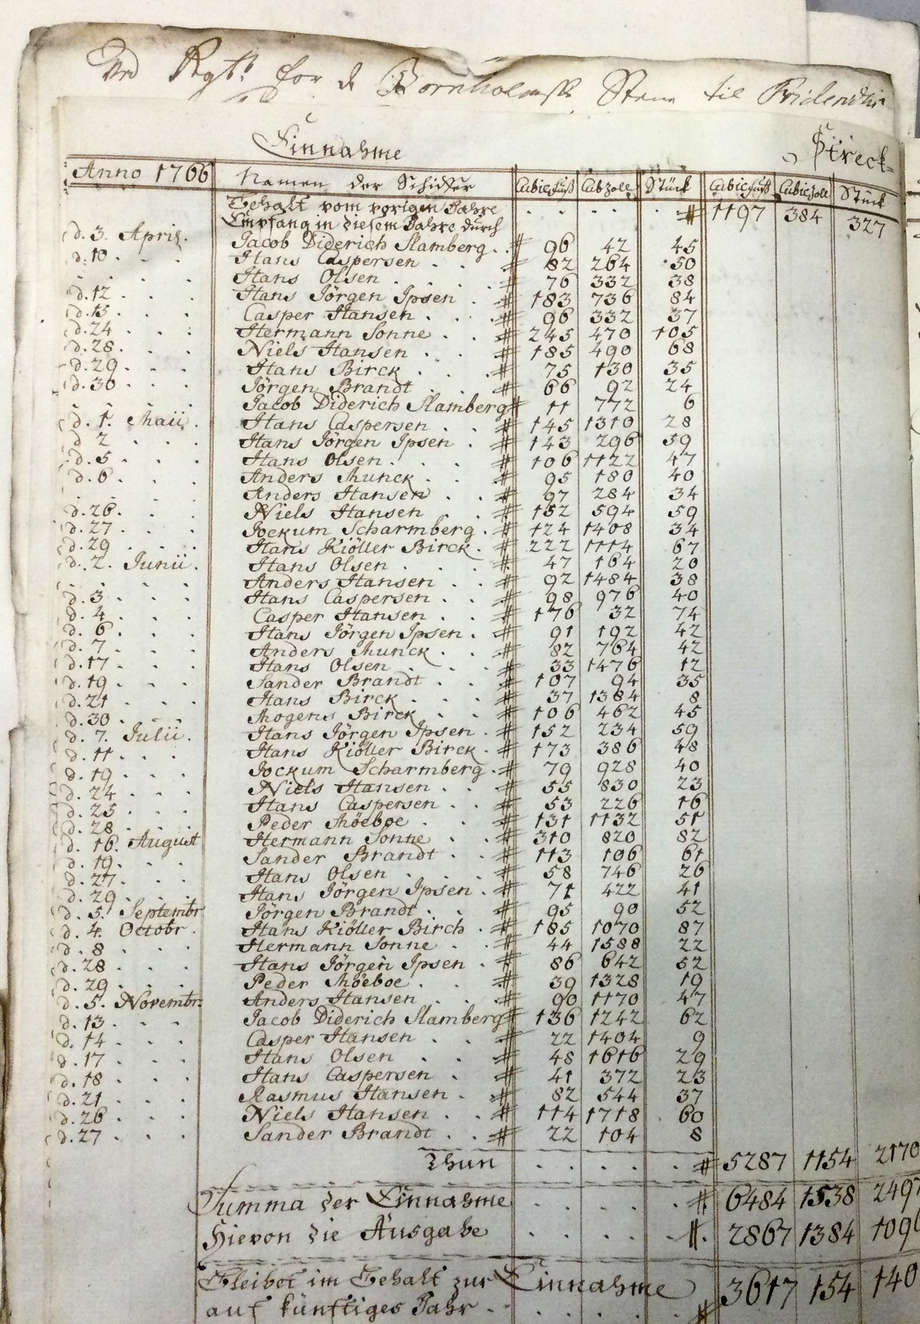 Ved Rgtr. for d Bornholmsk Steen til
Einnahme
Streck=
Anno 1766 Namen der Schiffer Cubicfuß Cub zoll Stück Cubicfuß Cubiczoll Stück
Behalt vom vorigen Jahre . . . . . # 1197 384 327
Empfang in diesem Jahre durch
d. 3. April. Jacob Diderich Slamberg . # 96 42 45
d. 10 . . . Hans Caspersen . . # 82 264 50
. . . . Hans Olsen . . . # 76 332 38
d. 12 . . . Hans Jörgen Ipsen . # 183 736 84
d. 13 . . . Casper Hansen . . # 96 332 37
d. 24 . . . Hermann Sonne . . # 245 470 105
d. 28 . . . Niels Hansen . . # 185 490 68
d. 29 . . . Hans Birck . . . # 75 130 35
d. 30 . . . Jörgen Brandt . . # 66 92 24
. . . . Jacob Diderich Slamberg # 11 772 6
d. 1. Maii . Hans Caspersen . . # 145 1310 28
d. 2 . . . Hans Jörgen Ipsen . # 143 296 59
d. 5 . . . Hans Olsen . . . # 106 1122 47
d. 6 . . . Anders Munck . . # 95 180 40
. . . . Anders Hansen . . # 97 284 34
d. 26 . . . Niels Hansen . . # 152 594 59
d. 27 . . . Jockum Scharmberg . # 124 1408 34
d. 29 . . . Hans Kiöller Birck . # 222 1114 67
d. 2. Junii . Hans Olsen . . . # 47 164 20
. . . . Anders Hansen . . # 92 1484 38
d. 3 . . . Hans Caspersen . . # 98 976 40
d. 4 . . . Casper Hansen . . # 176 32 74
d. 6 . . . Hans Jörgen Ipsen . # 91 192 42
d. 7 . . . Anders Munck . . # 82 764 42
d. 17 . . . Hans Olsen . . . # 33 1476 12
d. 19 . . . Sander Brandt . . # 107 94 35
d. 21 . . . Hans Birck . . . # 37 1384 8
d. 30 . . . Mogens Birck . . # 106 462 45
d. 7. Julii . Hans Jörgen Ipsen . # 152 234 59
d. 11 . . . Hans Kiöller Birck . # 173 386 48
d. 19 . . . Jockum Scharmberg . # 79 928 40
d. 24 . . . Niels Hansen . . # 55 830 23
d. 25 . . . Hans Caspersen . . # 53 226 16
d. 28 . . . Peder Möeboe . . # 131 1132 51
d. 16. August Hermann Sonne . . # 310 820 82
d. 19 . . . Sander Brandt . . # 113 106 61
d. 27 . . . Hans Olsen . . . # 58 746 26
d. 29 . . . Hans Jörgen Ipsen . # 71 422 41
d. 5. Septembr Jörgen Brandt . . # 95 90 52
d. 4. Octobr . Hans Kiöller Birch . # 185 1070 87
d. 8 . . . Hermann Sonne . . # 44 1588 22
d. 28 . . . Hans Jörgen Ipsen . # 86 642 52
d. 29 . . . Peder Möeboe . . # 39 1328 19
d. 5. Novembr: Anders Hansen . . # 90 1170 47
d. 13 . . . Jacob Diderich Slamberg # 136 1242 62
d. 14 . . . Casper Hansen . . # 22 1404 9
d. 17 . . . Hans Olsen . . . # 48 1616 29
d. 18 . . . Hans Caspersen . . # 41 372 23
d. 21 . . . Rasmus Hansen . . # 82 544 37
d. 26 . . . Niels Hansen . . # 114 1718 60
d. 27 . . . Sander Brandt . . # 22 104 8
Thun . . . . . # 5287 1154 2170
Summa der Einnahme . . . . . # 6484 1538 2497
Hievon die Ausgabe . . . . . # 2867 1384
Bleibet im Behalt zur Einnahme 3617 154
auf künftiges Jahr . . . . . . #